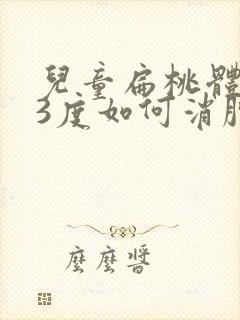 兒童扁桃體
3度如何消腫
麼麼醬